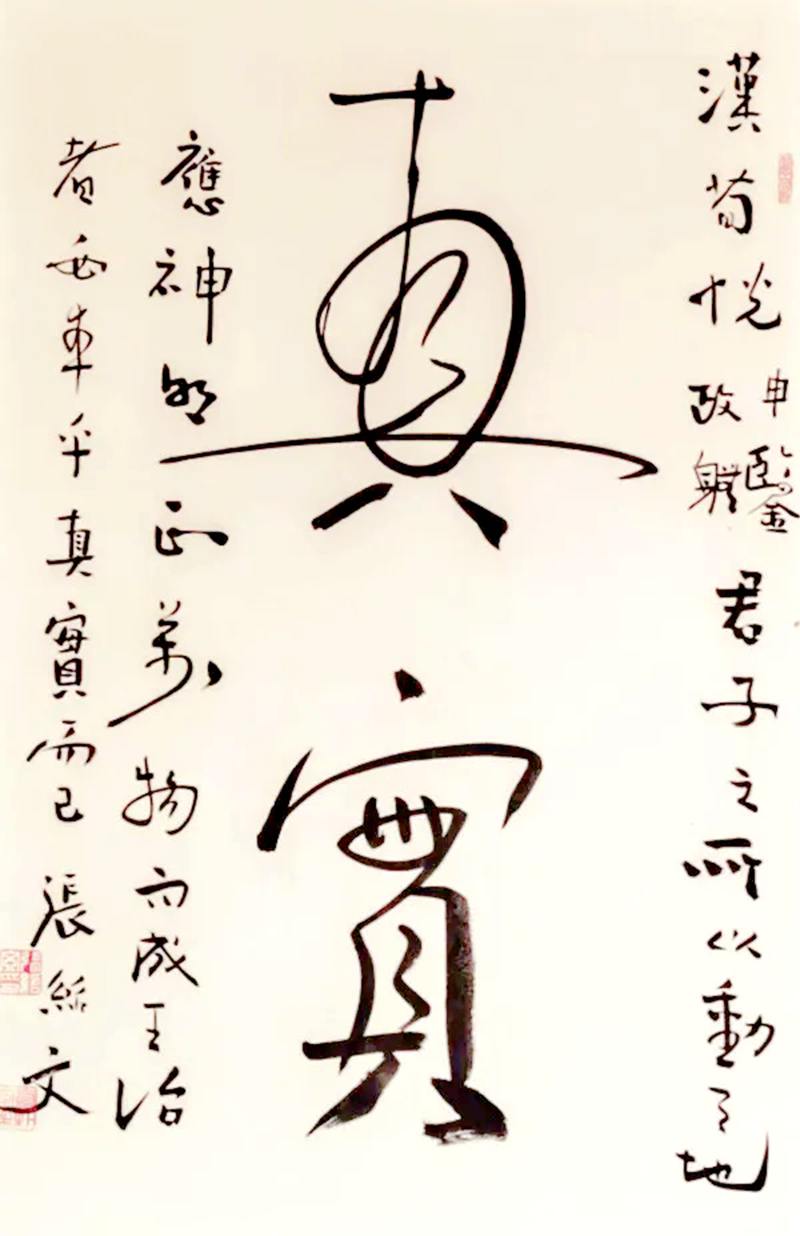 漢荀悅申鑒政軆君子之所以動天地
真實
應神明正萬物而成王治
者必本乎真實而已張文